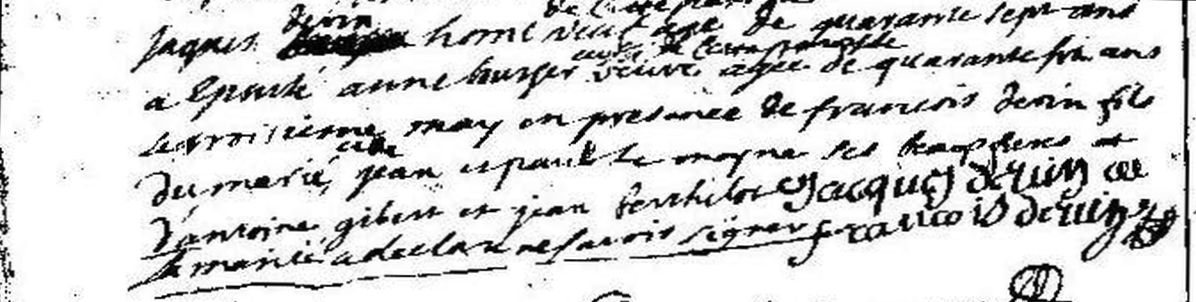 de cette paroisse
devin
Jaques home veuf agé de quarante sept ans
de cette paroisse
a Epousé anne burger veuve agée de quarante six ans
le troisieme may en presence de francois devin fils
du marié, jean et paul le moyne ses beaufreres et
d'antoine gibert et jean berthelot Jacques devin
la mariée a declaré ne savoir signer francois devin